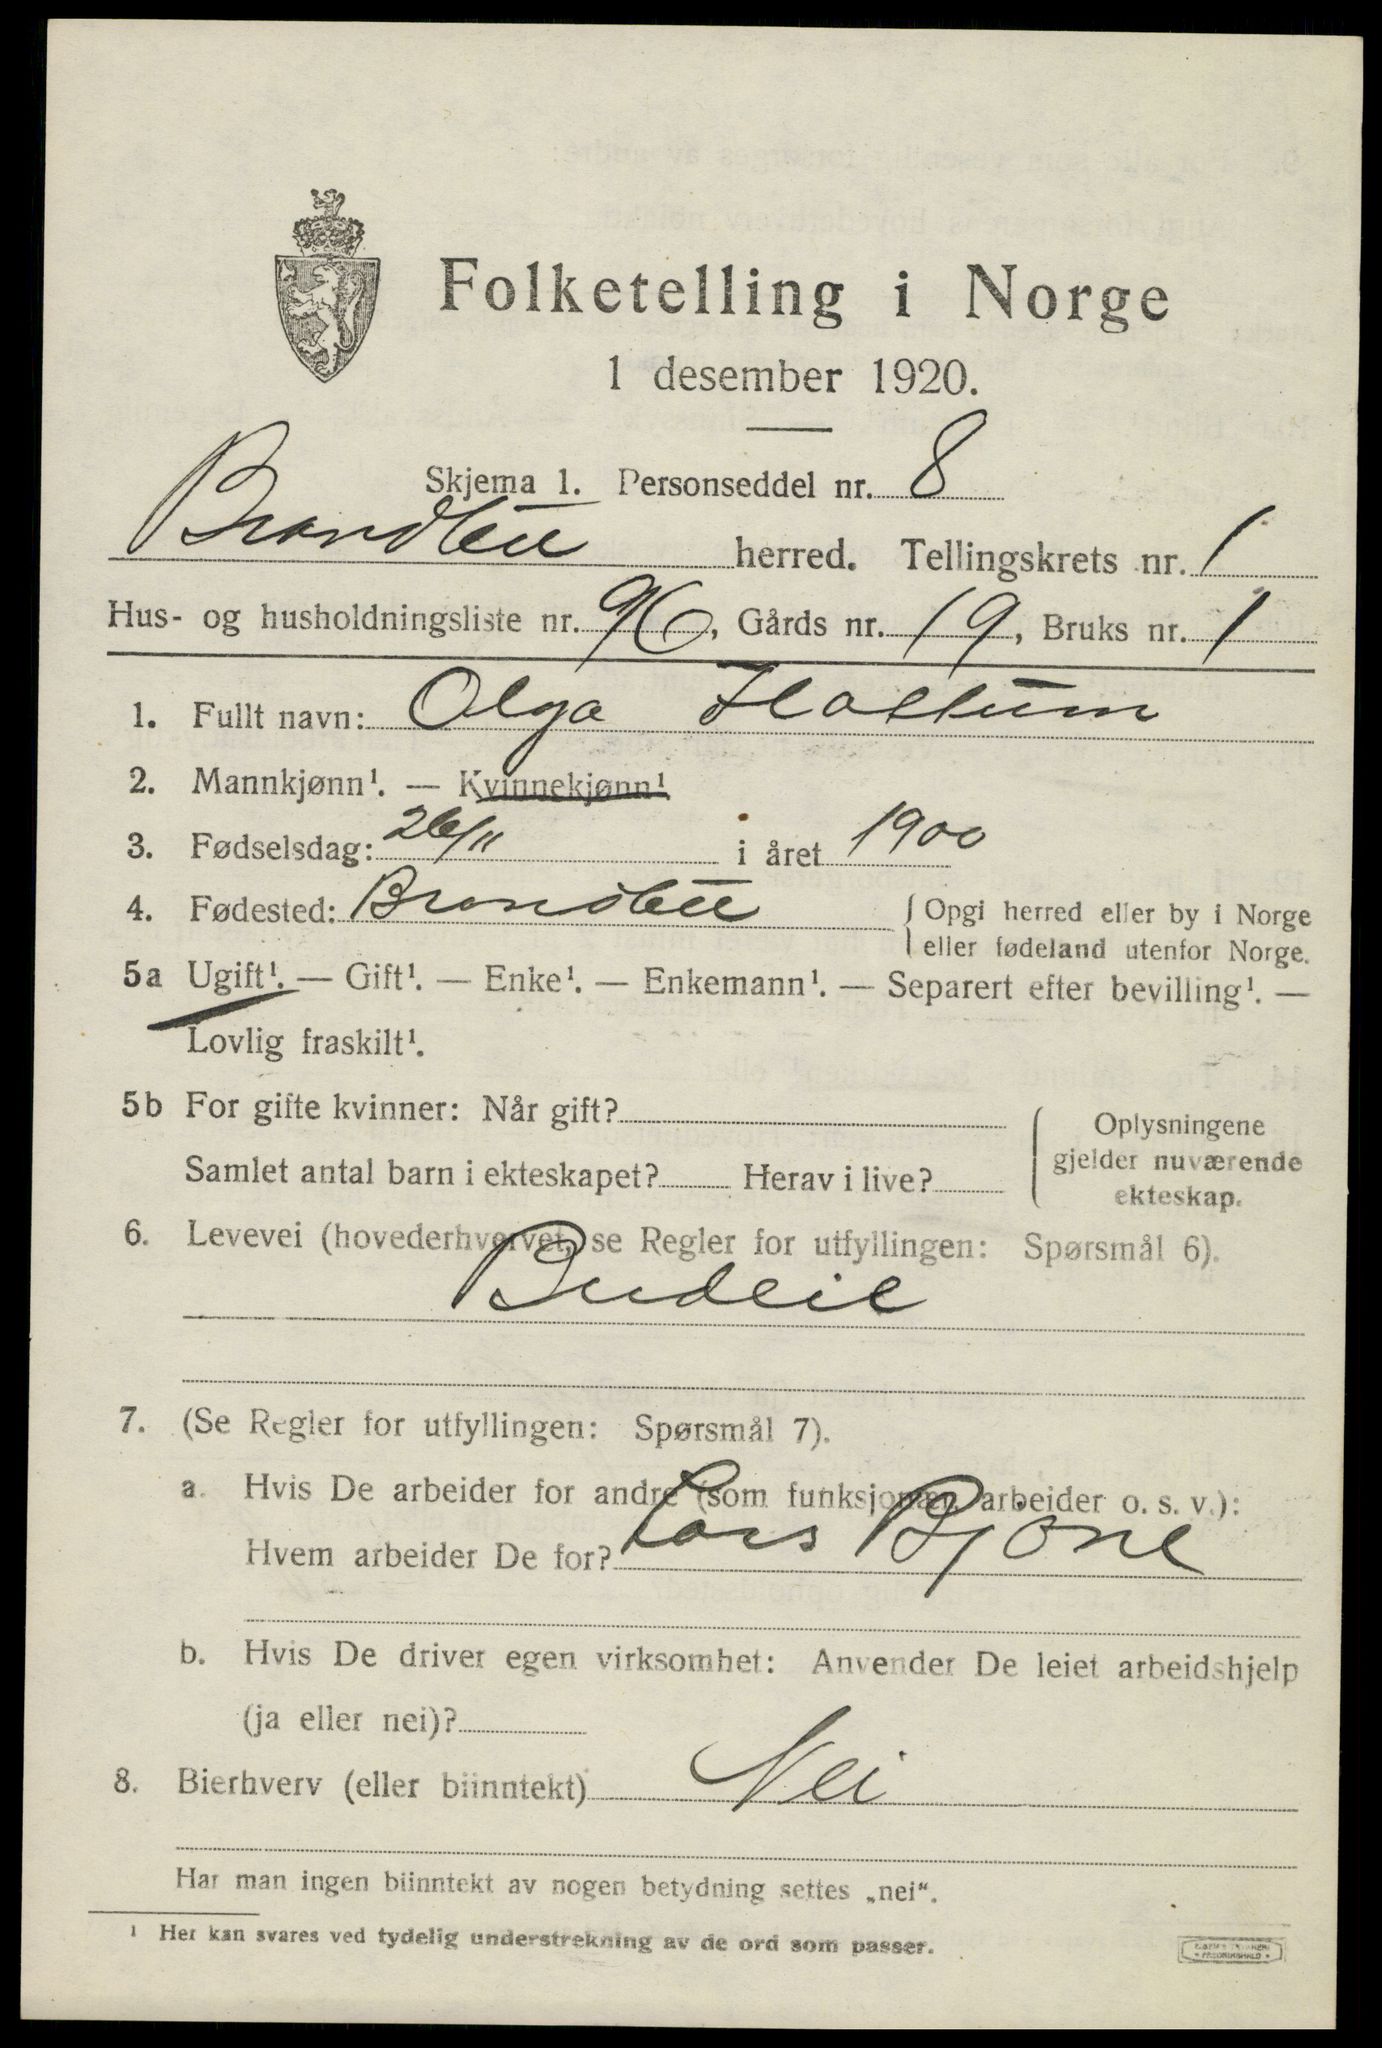 Folketelling i Norge
1 desember 1920.
Skjema 1. Personseddel nr. 8
Brandbu herred. Tellingskrets nr. 1
Hus- og husholdningsliste nr. 96, Gårds nr. 19, Bruks nr. 1
1. Fullt navn: Olga
2. Mannkjønn¹. — Kvinnekjønn¹
3. Fødselsdag: 26/11 i året 1900
4. Fødested: Brandbu { Opgi herred eller by i Norge
eller fødeland utenfor Norge.
5a Ugift¹. — Gift¹. — Enke¹. — Enkemann¹. — Separert efter bevilling¹. —
Lovlig fraskilt¹.
5b For gifte kvinner: Når gift?
Samlet antal barn i ekteskapet? Herav i live?
{ Oplysningene
gjelder nuværende
ekteskap.
6. Levevei (hovederhvervet, se Regler for utfyllingen: Spørsmål 6).
Budeie
7. (Se Regler for utfyllingen: Spørsmål 7).
a. Hvis De arbeider for andre (som funksjonær, arbeider o. s. v.):
Hvem arbeider De for? Lars Bjone
b. Hvis De driver egen virksomhet: Anvender De leiet arbeidshjelp
(ja eller nei)?
8. Bierhverv (eller biinntekt) Nei
Har man ingen biinntekt av nogen betydning settes „nei“.
¹ Her kan svares ved tydelig understrekning av de ord som passer.